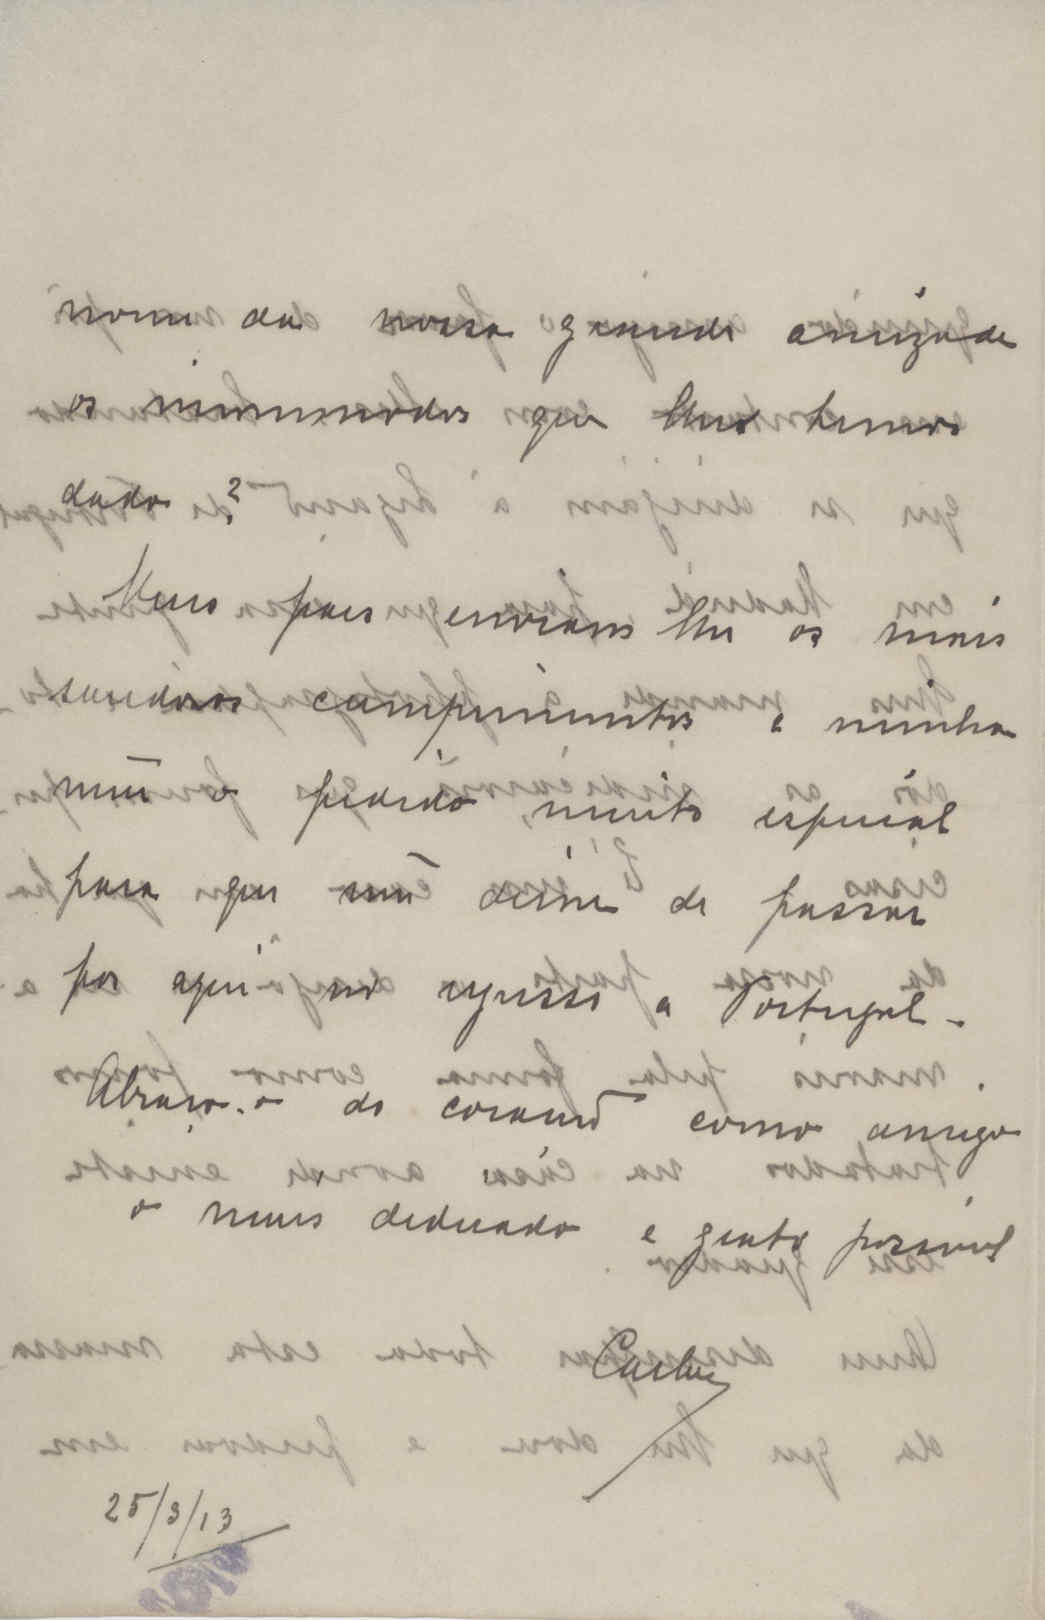 nome da nossa grande amizade
os incommodos que lhes temos
dado?
Meus paes enviam lhe os mais
sinceros cumprimentos e minha
mãe o pedido, muito especial
para que não deixe de passar
por aqui no regresso a Portugal.
Abraço-o do coração como amigo
o mais dedicado e grato possivel
Carlos
25/3/13